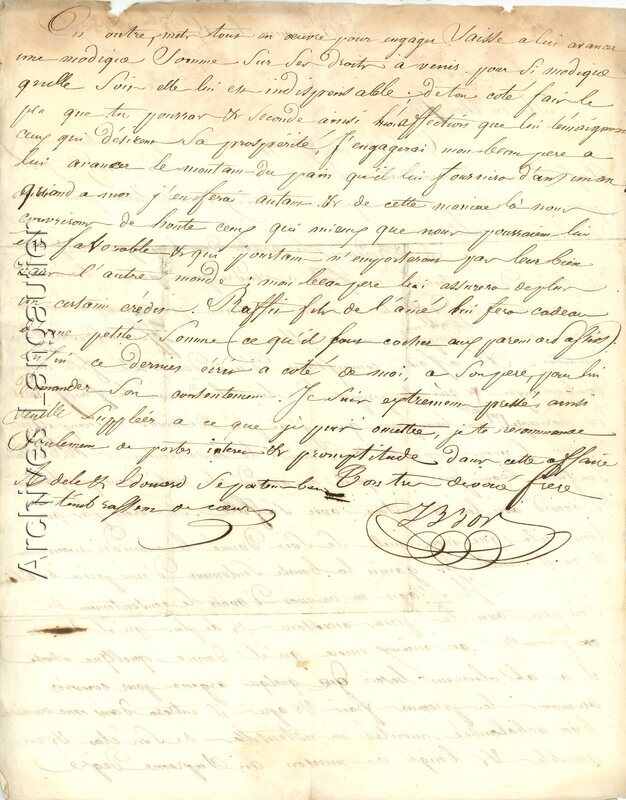 En outre, mets tous en œuvre pour engager Vaisse a lui avancer
une modique Somme Sur Ses droits a venir. pour Si modique
quelle Soit elle lui est indispensable ; de ton coté fais le
plus que tu pourras & Seconde ainsi l'affection que lui témoignent
ceux qui désirent Sa prospérité, J'engagerai mon beau pere a
lui avancer le montant du pain qu'il lui fournira d'ans un an
quand a moi j'en ferai autant & de cette maniere là nous
couvrirons de honte ceux qui mieux que nous pourraient lui
etre favorable & qui pourtant n'emporteront pas leur bien
dans l'autre monde ; mon beau pere lui assurera de plus
un certain credit. Raffin fils de l'ainé lui fera cadeau
d'une petite Somme (ce qu'il faut cacher aux parens d'a
Enfin ce dernier écrit a coté de moi, a Son pere, pour lui
demander Son consentement. Je Suis extrèment pressé, ainsi
veuille Suppléer a ce que je puis omettre, je te recommande
Seulement de porter interet & promptitude dans cette affaire
Adele & Edouard Se portent bien Ton tres devoué frere
& t'embrassent de cœur
Archives-Lengautier